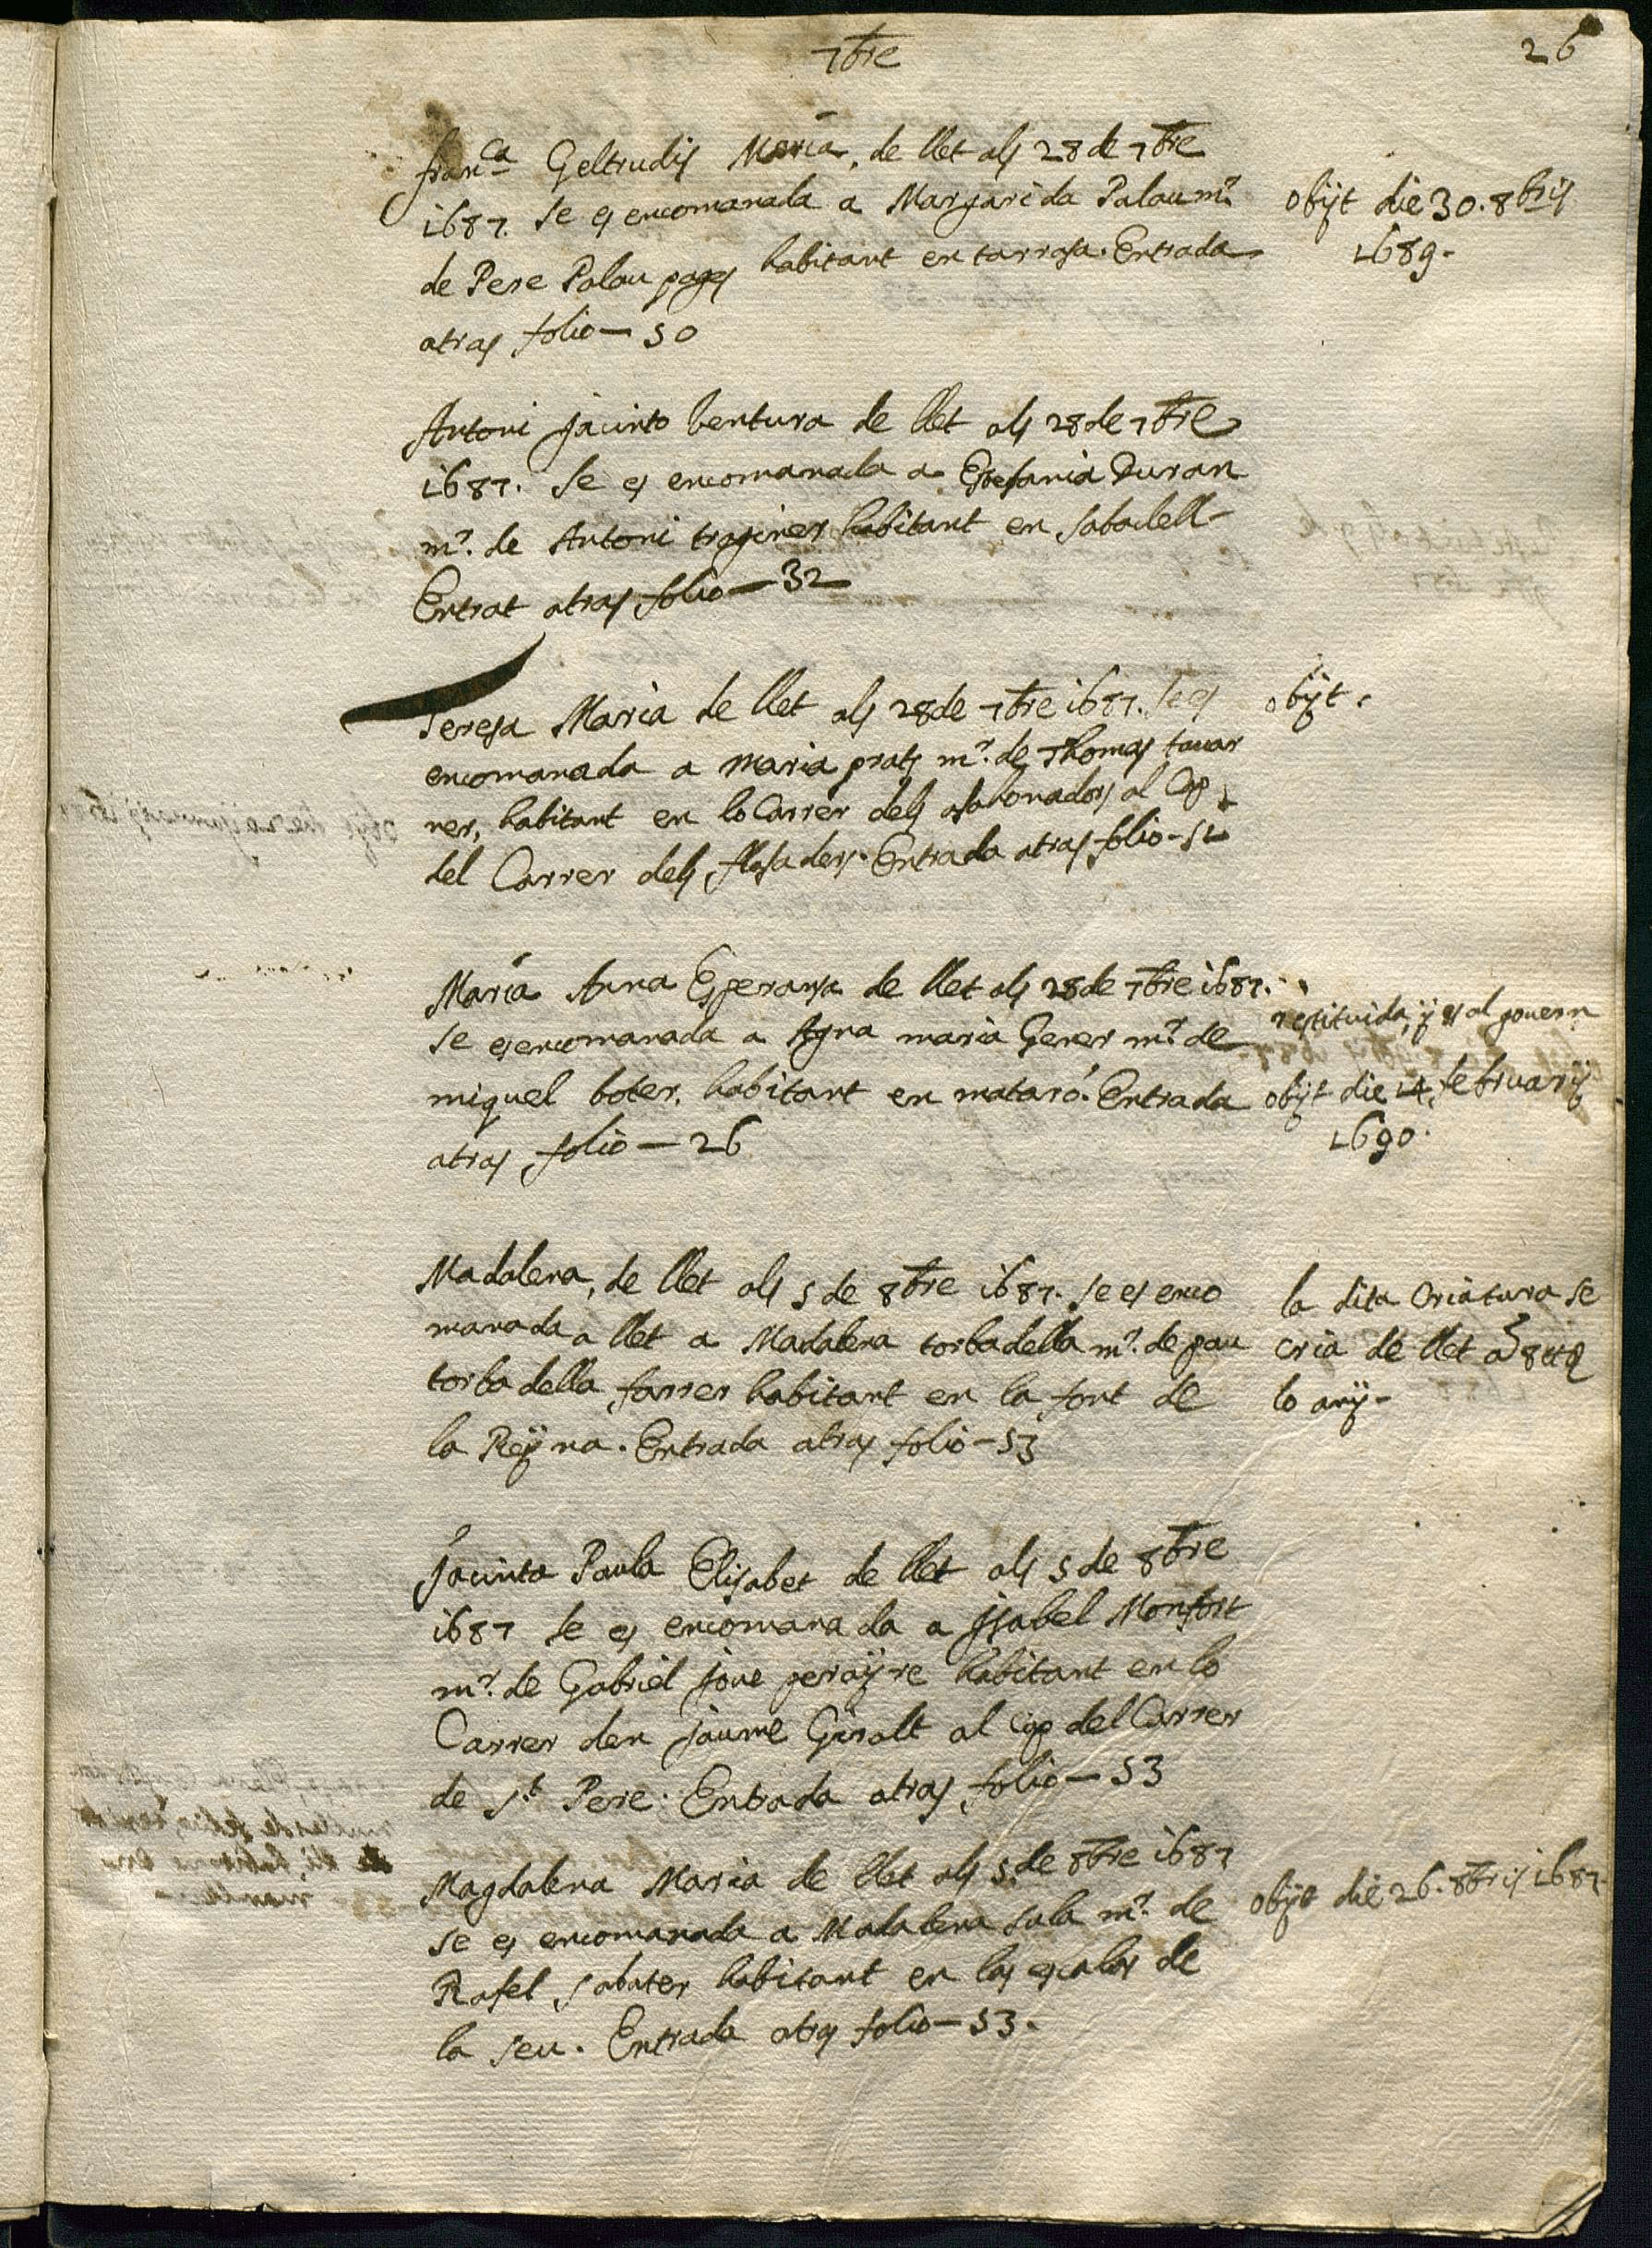 7bre
26
franca Geltrudis Maria, de llet als 28 de 7bre
1687. se es encomanada a Margarida Palau mr.
de Pere Palau pages habitant en tarrasa. Entrada
atras folio — 50
obijt die 30. 8bris
1689.
Antoni Jacinto bentura de llet als 28 de 7bre
1687. se es encomanada a Estefania Duran
mr. de Antoni traginer habitant en sabadell
Entrat atras folio — 32
Teresa Maria de llet als 28 de 7bre 1687. se es
encomanada a maria prats mr. de Thomas tavar
ner, habitant en lo Carrer dels assaonadors al Cap
del Carrer dels flassaders. Entrada atras folio - 51
obijt.
Maria Anna Esperansa de llet als 28 de 7bre 1687.
se es encomanada a Agna maria Gener mr. de
miquel boter, habitant en mataró. Entrada
atras folio — 26
restituida, y es al govern
obijt die 14 februarij
1690.
Madalena, de llet als 5 de 8bre 1687. se es enco
manada a llet a Madalena torbadella mr. de pau
torbadella farrer habitant en la font de
la Reyna. Entrada atras folio - 53
la dita Criatura se
cria de llet a 8 ll
lo any -
Jacinta Paula Elisabet de llet als 5 de 8bre
1687 se es encomanada a Isabel Monfort
mr. de Gabriel Jove perayre habitant en lo
Carrer den Jaume Giralt al Cap del Carrer
de st. Pere. Entrada atras folio — 53
Magdalena Maria de llet als 5 de 8bre 1687
se es encomanada a Madalena sala mr. de
Rafel sabater habitant en las escalas de
la seu. Entrada atras folio — 53.
obijt die 26. 8bris 1687.